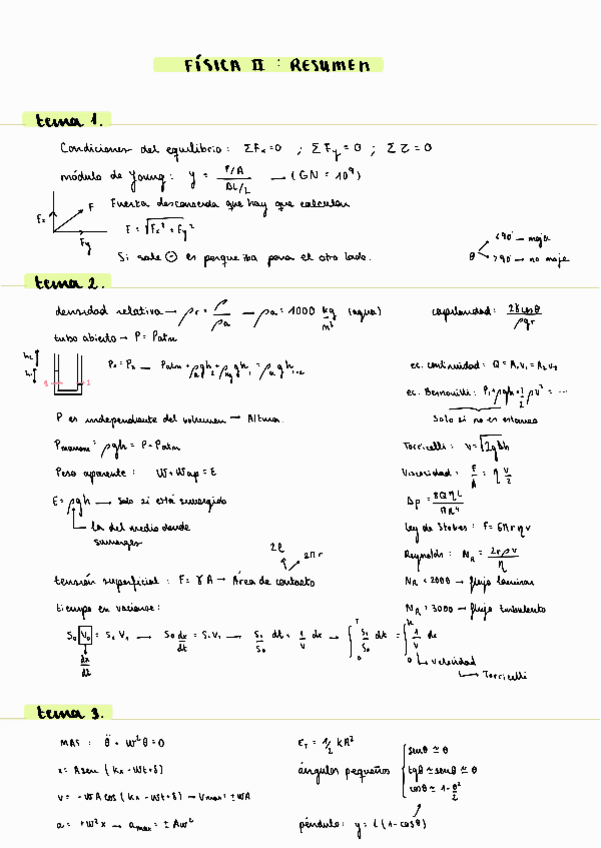 FÍSICA II : RESUMEN
tema 1.
Condiciones del equilibrio: ΣFx=0 ; ΣFy=0 ; Στ=0
módulo de Young: y = F/A / ΔL/L → (GN = 10⁹)
Fx F Fy
Fuerza desconocida que hay que calcular
F = √Fx² + Fy²
Si sale ⊖ es porque iba para el otro lado.
θ <90° → moja
>90° → no moja
tema 2.
densidad relativa → ρr = ρ/ρa → ρa = 1000 kg/m³ (agua)
capilaridad: 2γcosθ/ρgr
tubo abierto → P = Patm
ec. continuidad: Q = A₁v₁ = A₂v₂
ec. Bernouilli: P₁+ρgh+1/2 ρv² = ...
solo si no es estanco
P es independiente del volumen → Altura.
Pmanom = ρgh = P - Patm
Torricelli: v = √2gΔh
Peso aparente: W + Wap = E
Viscosidad: F/A = η v/z
E = ρgh → solo si está sumergido
Δp = 8QηL/πR⁴
la del medio donde
sumerges
Ley de Stokes: F = 6πrηv
Reynolds: NR = 2rρv/η
2l 2πr
tensión superficial: F = γA → Área de contacto
NR < 2000 → flujo laminar
tiempo en vaciarse:
NR > 3000 → flujo turbulento
velocidad
Torricelli
tema 3.
MAS: θ̈ + w²θ = 0
ET = 1/2 kA²
x = A sen (kx - wt + δ)
ángulos pequeños
senθ ≃ θ
tgθ ≃ senθ ≃ θ
cosθ ≃ 1 - θ²/2
v = -wA cos (kx - wt + δ) → Vmax = ± wA
a = +w²x → amax = ± Aw²
péndulo: y = l (1 - cosθ)